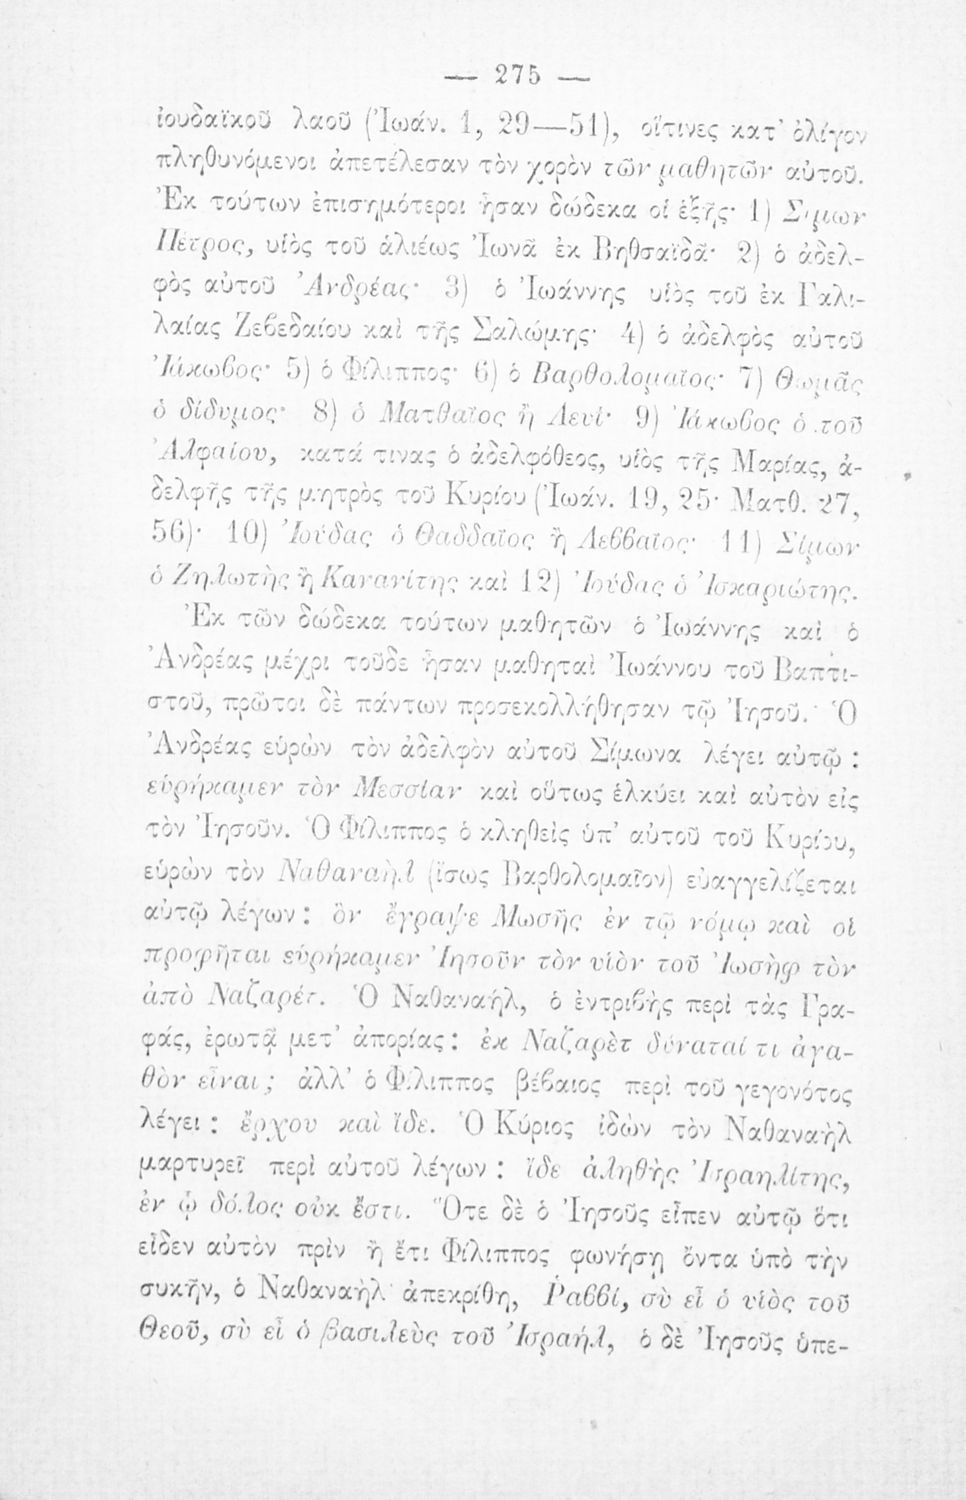 — 275 —
ἰουδαϊκοῦ λαοῦ (Ἰωάν. 1, 29—51), οἵτινες κατ' ὀλίγον
πληθυνόμενοι ἀπετέλεσαν τὸν χορὸν τῶν μαθητῶν αὐτοῦ.
Ἐκ τούτων ἐπισημότεροι ἦσαν δώδεκα οἱ ἑξῆς· 1) Σίμων
Πέτρος, υἱὸς τοῦ ἁλιέως Ἰωνᾶ ἐκ Βηθσαϊδᾶ· 2) ὁ ἀδελ-
φὸς αὐτοῦ Ἀνδρέας· 3) ὁ Ἰωάννης υἱὸς τοῦ ἐκ Γαλι-
λαίας Ζεβεδαίου καὶ τῆς Σαλώμης· 4) ὁ ἀδελφὸς αὐτοῦ
Ἰάκωβος· 5) ὁ Φίλιππος· 6) ὁ Βαρθολομαῖος· 7) Θωμᾶς
ὁ δίδυμος· 8) ὁ Ματθαῖος ἢ Λευΐ· 9) Ἰάκωβος ὁ τοῦ
Ἀλφαίου, κατά τινας ὁ ἀδελφόθεος, υἱὸς τῆς Μαρίας, ἀ-
δελφῆς τῆς μητρὸς τοῦ Κυρίου (Ἰωάν. 19, 25· Ματθ. 27,
56)· 10) Ἰούδας ὁ Θαδδαῖος ἢ Λεββαῖος· 11) Σίμων
ὁ Ζηλωτὴς ἢ Κανανίτης καὶ 12) Ἰούδας ὁ Ἰσκαριώτης.
Ἐκ τῶν δώδεκα τούτων μαθητῶν ὁ Ἰωάννης καὶ ὁ
Ἀνδρέας μέχρι τοῦδε ἦσαν μαθηταὶ Ἰωάννου τοῦ Βαπτι-
στοῦ, πρῶτοι δὲ πάντων προσεκολλήθησαν τῷ Ἰησοῦ. Ὁ
Ἀνδρέας εὑρὼν τὸν ἀδελφὸν αὐτοῦ Σίμωνα λέγει αὐτῷ :
εὑρήκαμεν τὸν Μεσσίαν καὶ οὕτως ἑλκύει καὶ αὐτὸν εἰς
τὸν Ἰησοῦν. Ὁ Φίλιππος ὁ κληθεὶς ὑπ' αὐτοῦ τοῦ Κυρίου,
εὑρὼν τὸν Ναθαναὴλ (ἴσως Βαρθολομαῖον) εὐαγγελίζεται
αὐτῷ λέγων : ὃν ἔγραψε Μωσῆς ἐν τῷ νόμῳ καὶ οἱ
προφῆται εὑρήκαμεν Ἰησοῦν τὸν υἱὸν τοῦ Ἰωσὴφ τὸν
ἀπὸ Ναζαρέτ. Ὁ Ναθαναήλ, ὁ ἐντριβὴς περὶ τὰς Γρα-
φάς, ἐρωτᾷ μετ' ἀπορίας : ἐκ Ναζαρὲτ δύναταί τι ἀγα-
θὸν εἶναι ; ἀλλ' ὁ Φίλιππος βέβαιος περὶ τοῦ γεγονότος
λέγει : ἔρχου καὶ ἴδε. Ὁ Κύριος ἰδὼν τὸν Ναθαναὴλ
μαρτυρεῖ περὶ αὐτοῦ λέγων : ἴδε ἀληθὴς Ἰσραηλίτης,
ἐν ᾧ δόλος οὐκ ἔστι. Ὅτε δὲ ὁ Ἰησοῦς εἶπεν αὐτῷ ὅτι
εἶδεν αὐτὸν πρὶν ἢ ἔτι Φίλιππος φωνήσῃ ὄντα ὑπὸ τὴν
συκῆν, ὁ Ναθαναὴλ ἀπεκρίθη, Ῥαββί, σὺ εἶ ὁ υἱὸς τοῦ
Θεοῦ, σὺ εἶ ὁ βασιλεὺς τοῦ Ἰσραήλ, ὁ δὲ Ἰησοῦς ὑπε-